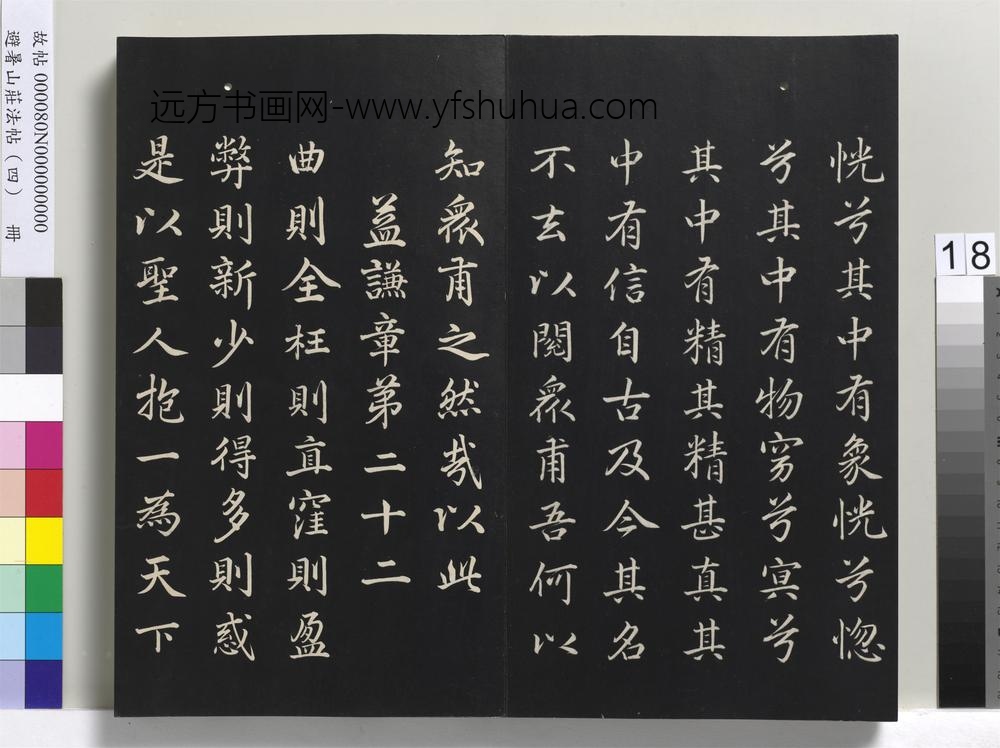 恍兮其中有象恍兮惚
兮其中有物窈兮冥兮
其中有精其精甚真其
中有信自古及今其名
不去以閱眾甫吾何以
知眾甫之然哉以此
益謙章第二十二
曲則全枉則直窪則盈
弊則新少則得多則惑
是以聖人抱一為天下
远方书画网-www.yfshuhua.com
故帖 000080N000000000
避暑山莊法帖（四） 冊
18